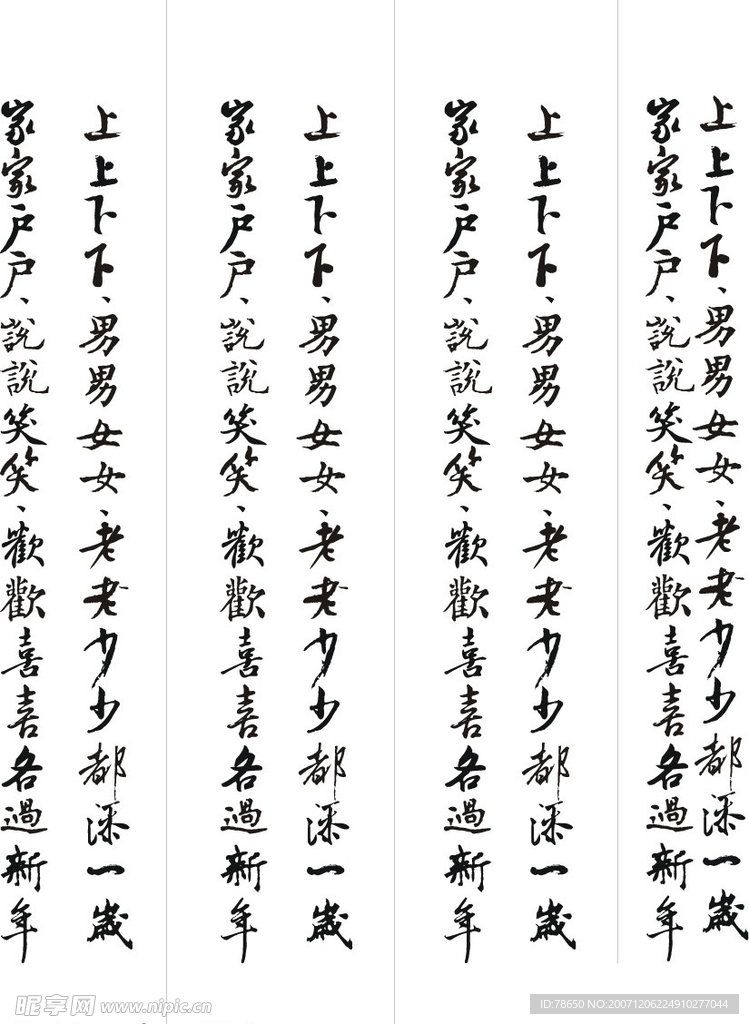 上上下下、男男女女、老老少少都添一歲
家家户户、説説笑笑、歡歡喜喜各過新年
上上下下、男男女女、老老少少都添一歲
家家户户、説説笑笑、歡歡喜喜各過新年
上上下下、男男女女、老老少少都添一歲
家家户户、説説笑笑、歡歡喜喜各過新年
上上下下、男男女女、老老少少都添一歲
家家户户、説説笑笑、歡歡喜喜各過新年
昵享网 www.nipic.cn
ID:78650 NO:20071206224910277044